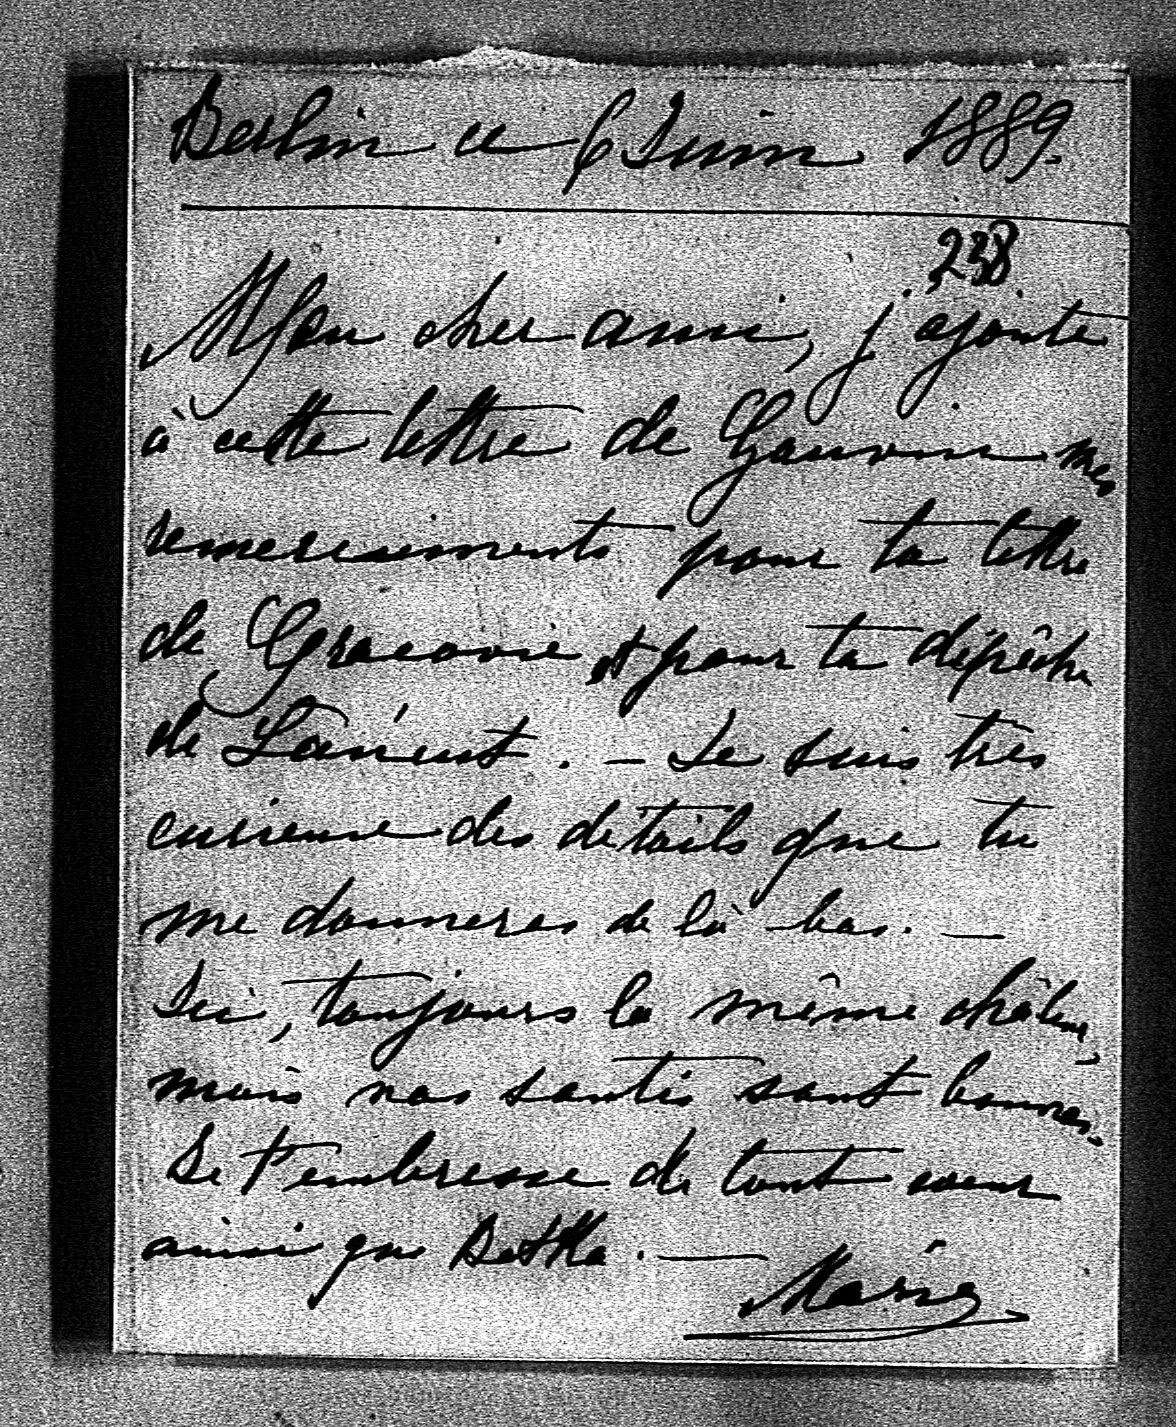 Berlin ce 6 Juin 1889.
238.
Mon cher ami, j'ajoute
à cette lettre de Gouvoin mes
remerciements pour ta lettre
de Cracovie et pour ta dépêche
de Łańcut. – Je suis très
curieuse des détails que tu
me donneras de là-bas. –
Ici, toujours la même chaleur,
mais nos santés sont bonnes.
Je t'embrasse de tout coeur
ainsi que Bethka. –
Marie